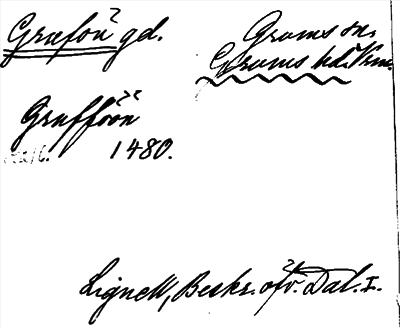 Græfön gd.
Grums sn.
Grums hd. Vrm.
Grufföön
1480.
Lignell, Beskr. öfv. Dal. I.